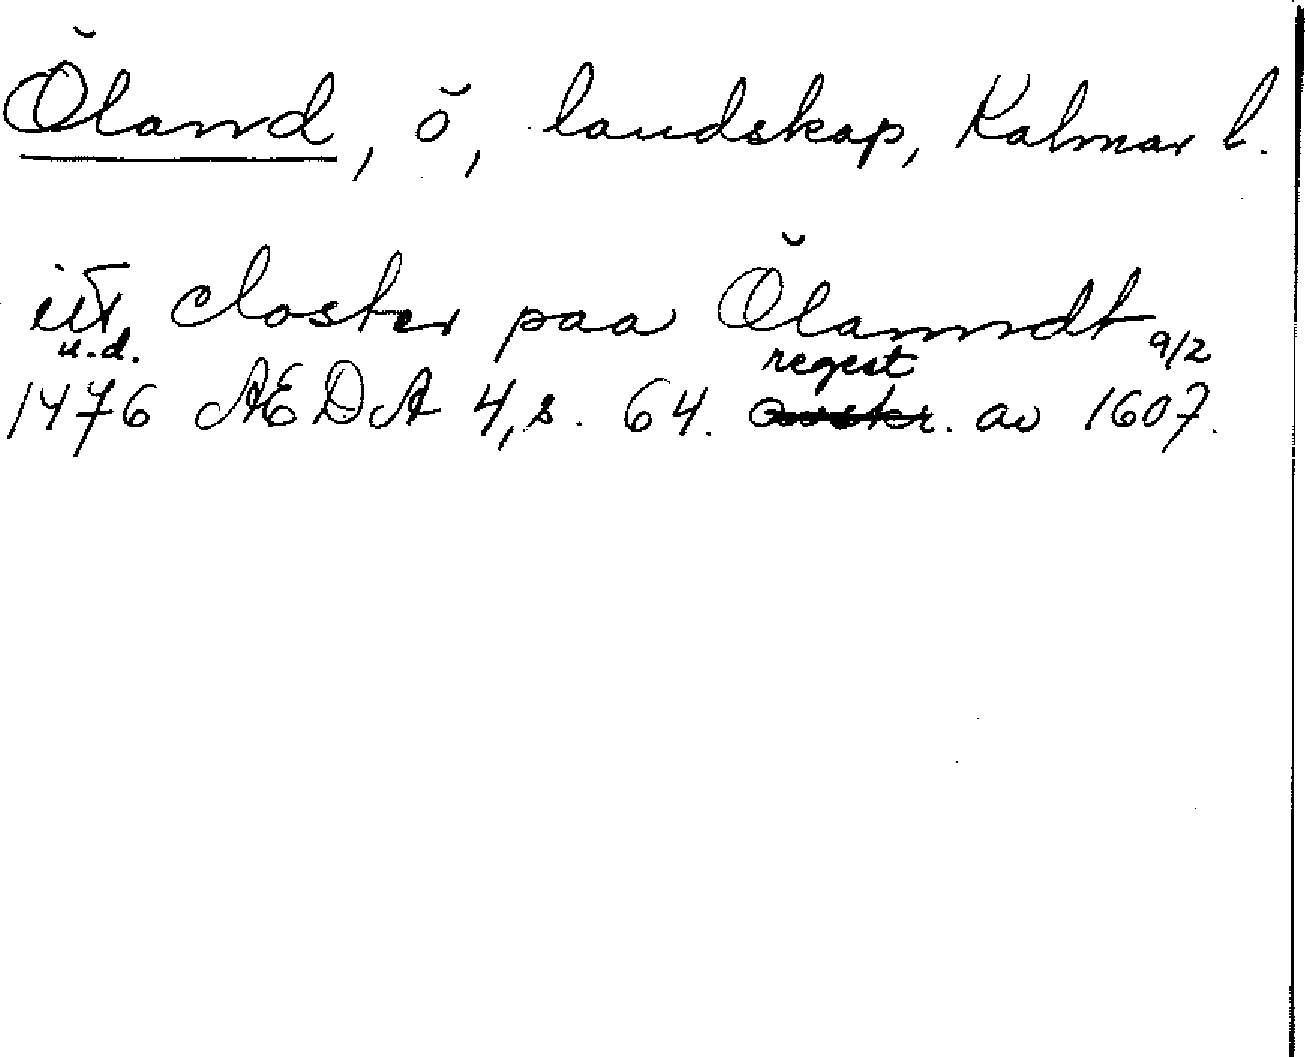 Öland, ö, landskap, Kalmar l.
itt closter paa Ölanndt 9/2
u.d. regest
1476 AEDA 4, s. 64. avskr. av 1607.